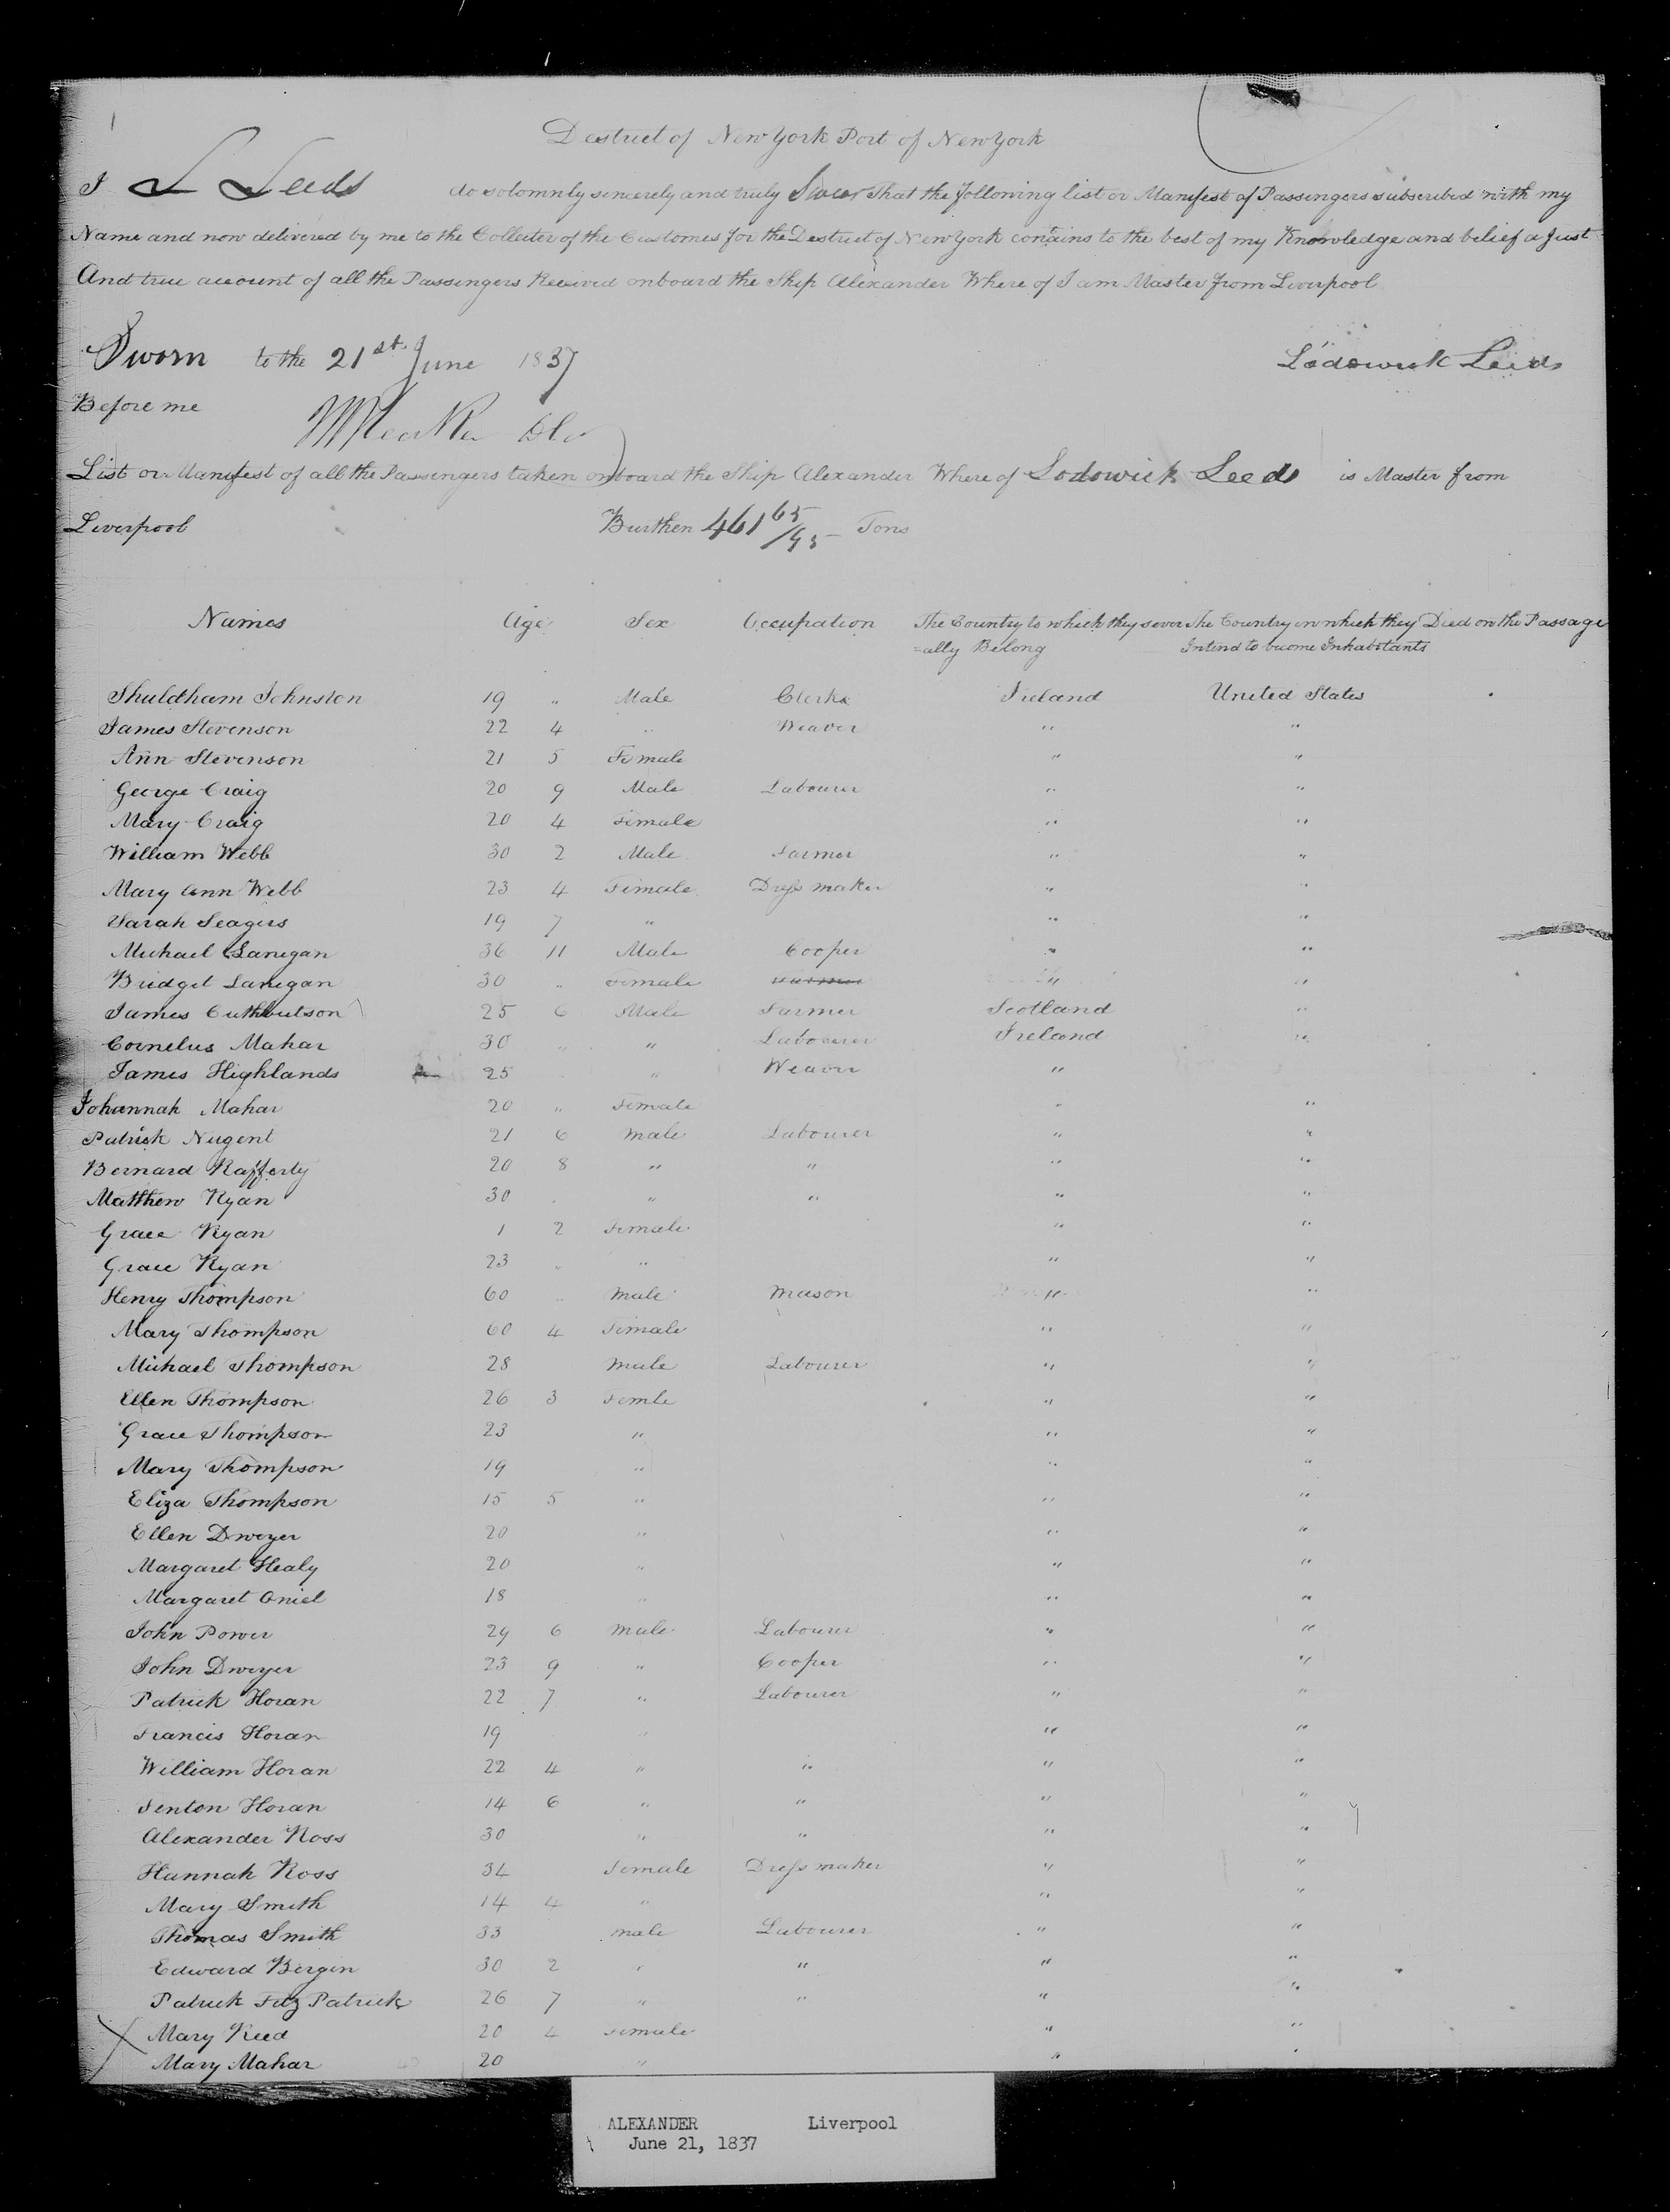 Destrict of New York Port of New York
I L Leeds do solomnly sincerely and truly Swear That the following list or Manifest of Passengers subscribed with my
Name and now delivered by me to the Collecter of the Customes for the Destrict of New York contains to the best of my Knowledge and belief a Just
And true account of all the Passengers Received onboard the Ship Alexander Where of I am Master from Liverpool
Sworn to the 21st June 1837 Lodowick Leeds
Before me
List or Manifest of all the Passengers taken onboard the Ship Alexander Where of Lodowick Leeds is Master from
Liverpool Burthen 461 65/95 Tons
Names Age Sex Occupation The Country to which they sever The Country in which they Died on the Passage
=ally Belong Intend to become Inhabitants
Shuldham Johnston 19 " Male Clerk Ireland United States
James Stevenson 22 4 " Weaver " "
Ann Stevenson 21 5 Female " "
George Craig 20 9 Male Labourer " "
Mary Craig 20 4 Female " "
William Webb 30 2 Male Farmer " "
Mary Ann Webb 23 4 Female Dress maker " "
Sarah Seagers 19 7 " " "
Michael Lanegan 36 11 Male Cooper " "
Bridget Lanegan 30 " Female " "
James Cuthbutson 25 6 Male Farmer Scotland "
Cornelus Mahar 30 " " Labourer Ireland "
James Highlands 25 " Weaver "
Johannah Mahar 20 " Female " "
Patrick Nugent 21 6 male Labourer " "
Bernard Rafferty 20 8 " " " "
Matthew Ryan 30 " " " "
Grace Ryan 1 2 Female " "
Grace Ryan 23 " " " "
Henry Thompson 60 " male mason " "
Mary Thompson 60 4 Female " "
Michael Thompson 28 male Labourer " "
Ellen Thompson 26 3 Femle " "
Grace Thompson 23 " " "
Mary Thompson 19 " " "
Eliza Thompson 15 5 " " "
Ellen Dweyer 20 " " "
Margaret Healy 20 " " "
Margaret Oniel 18 " " "
John Power 29 6 male Labourer " "
John Dweyer 23 9 " Cooper " "
Patrick Horan 22 7 " Labourer " "
Francis Horan 19 " " "
William Horan 22 4 " " " "
Fenton Horan 14 6 " " " "
Alexander Ross 30 " " " "
Hannah Ross 34 Female Dress maker " "
Mary Smith 14 4 " " "
Thomas Smith 33 male Labourer " "
Edward Bergin 30 2 " " " "
Patrick Fitz Patrick 26 7 " " " "
Mary Reed 20 4 Female " "
Mary Mahar 20 " " "
ALEXANDER Liverpool
June 21, 1837